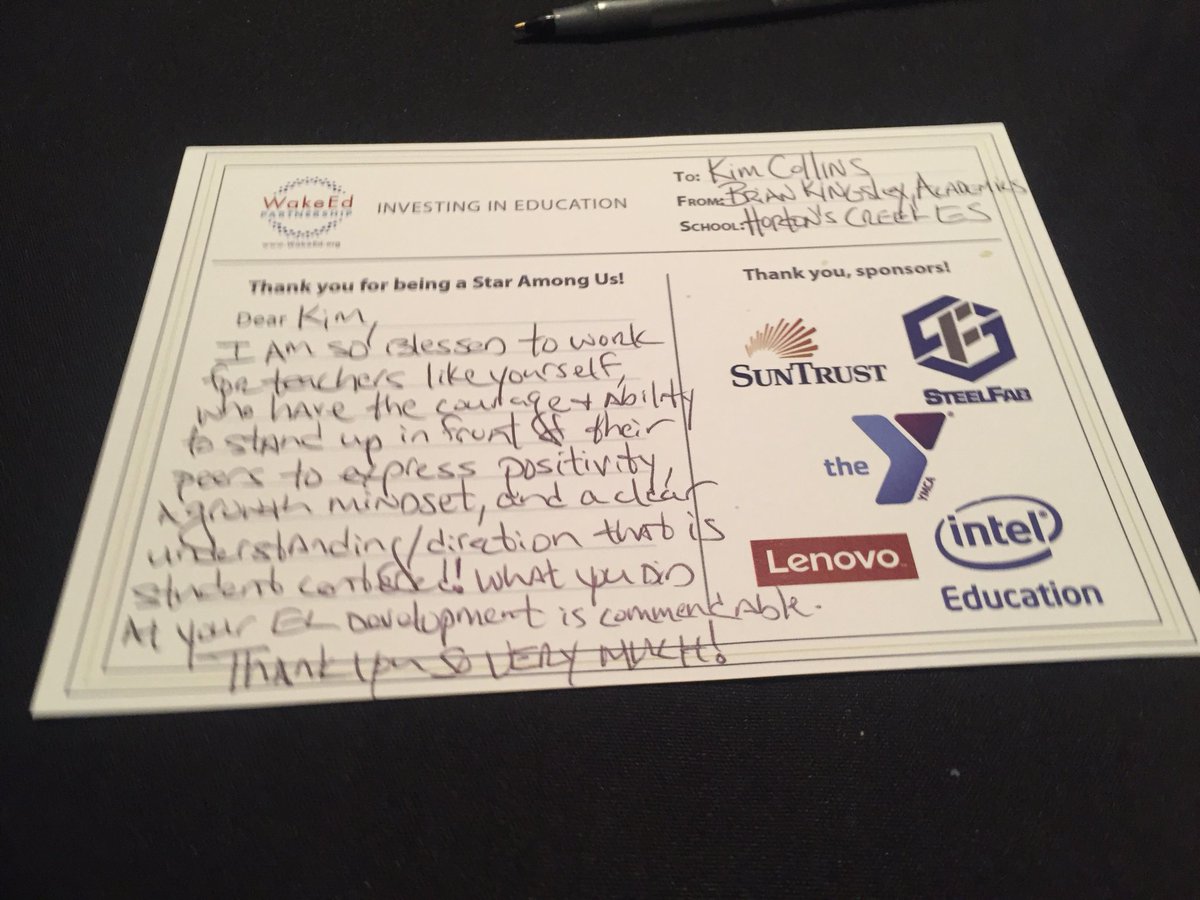 WakeEd
PARTNERSHIP
www.WakeEd.org
INVESTING IN EDUCATION
To: Kim Collins
FROM: BRIAN KINGSLEY, ACADEMICS
SCHOOL: HORTON'S CREEK ES
Thank you for being a Star Among Us!
Dear Kim,
I AM so Blessed to work
for teachers like yourself,
who have the courage + Ability
to stand up in front of their
peers to express positivity,
A growth mindset, and a clear
understanding/direction that is
student centered! What you did
At your EL Development is commendable.
Thank you so VERY MUCH!
Thank you, sponsors!
SUNTRUST
STEELFAB
the
YMCA
Lenovo
intel
Education